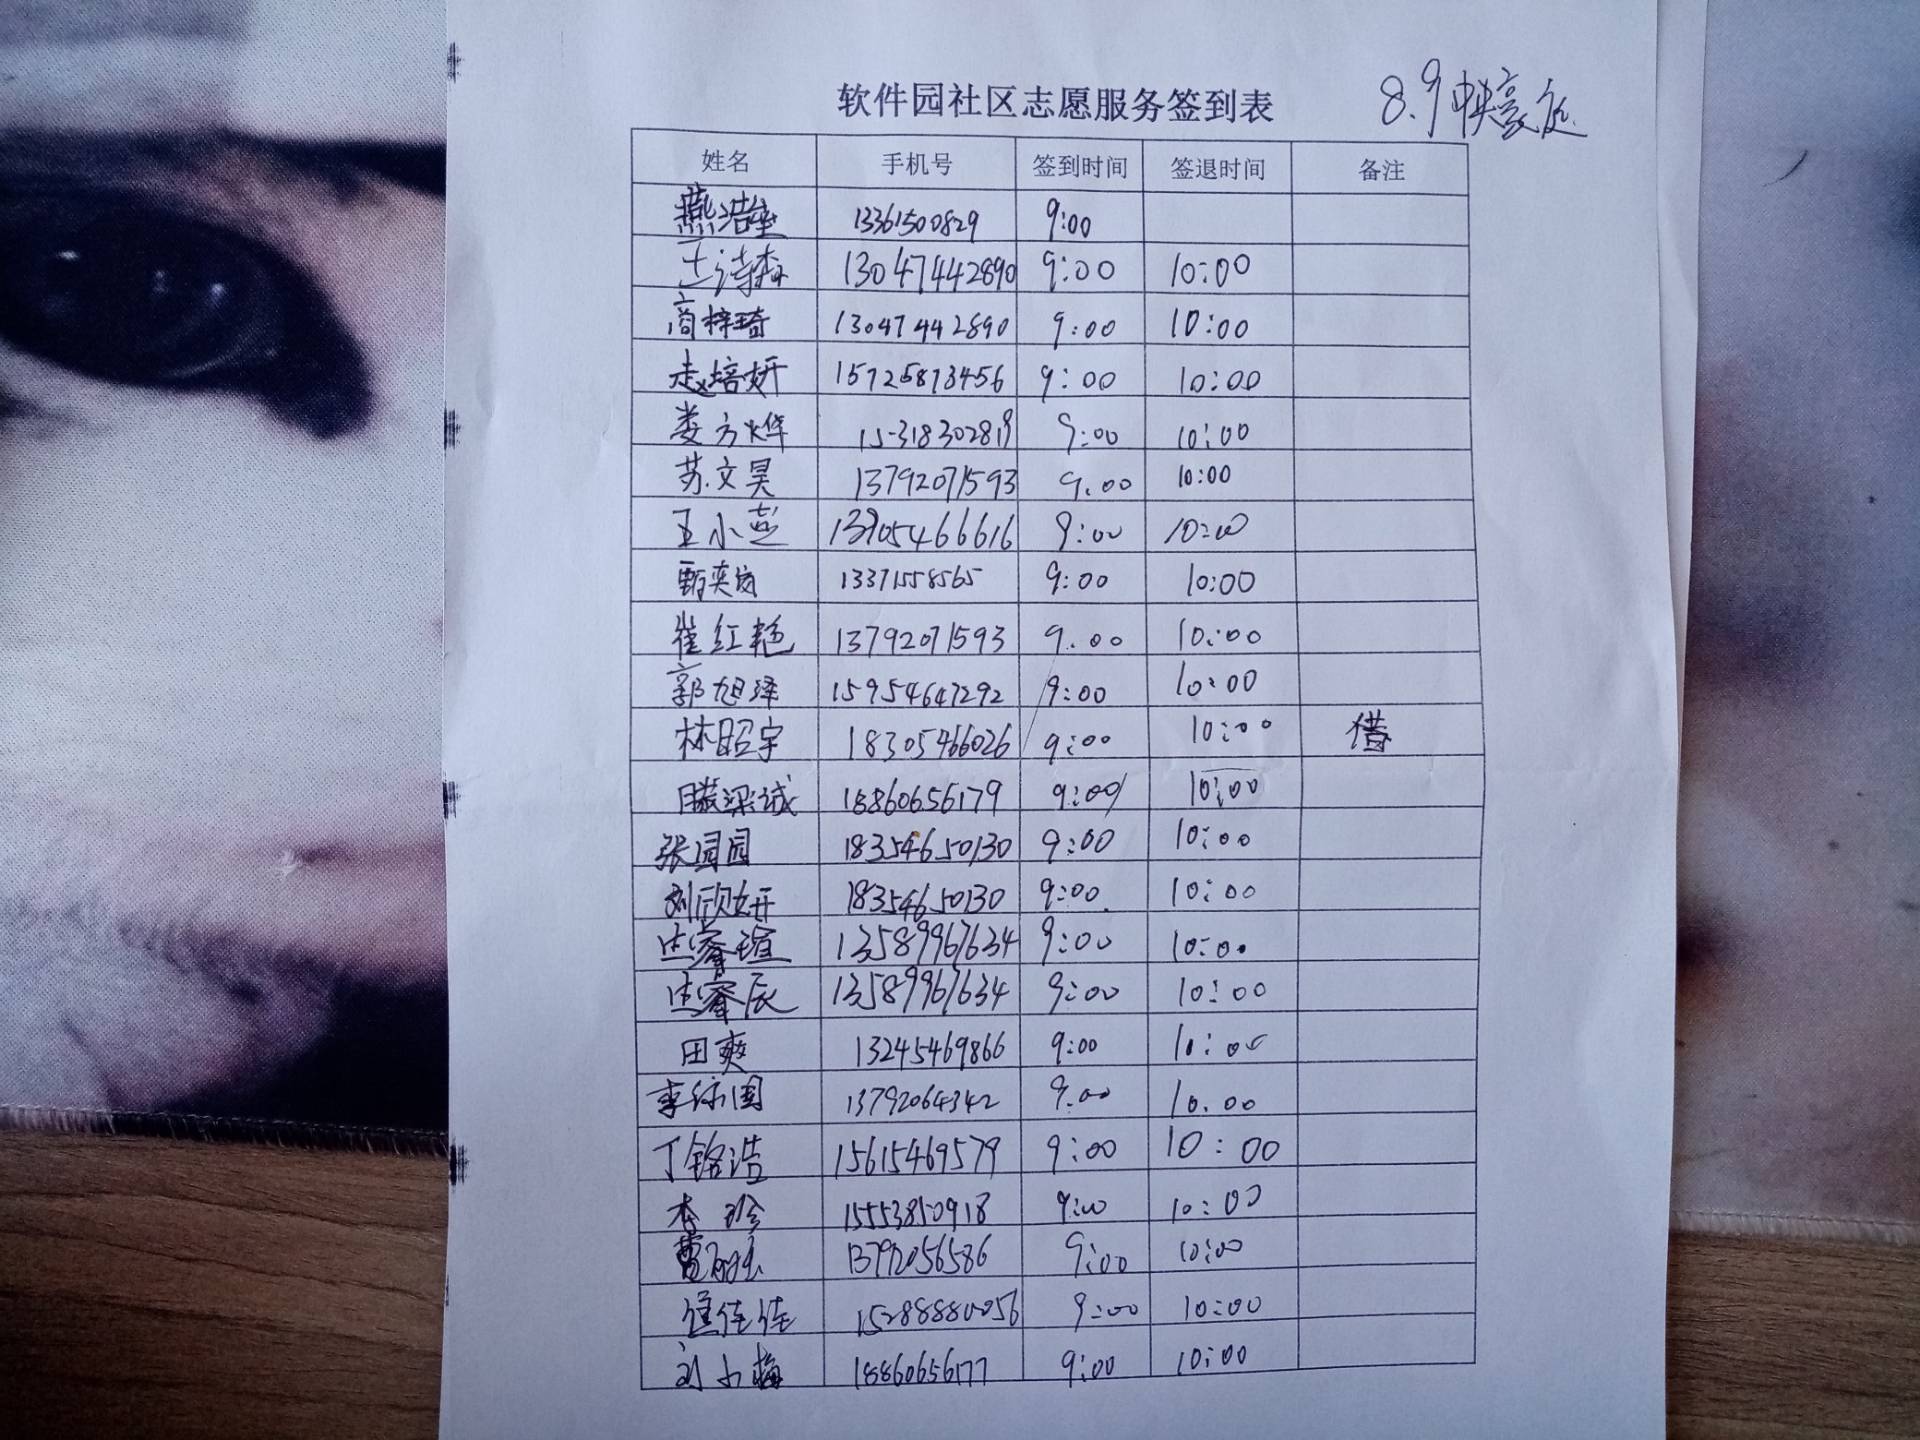 软件园社区志愿服务签到表
8.9 中央豪庭
姓名 手机号 签到时间 签退时间 备注
燕浩 13361500829 9:00
王诗森 13047442890 9:00 10:00
商梓琦 13047442890 9:00 10:00
赵培妍 15725873456 9:00 10:00
娄方烨 15318302819 9:00 10:00
苏文昊 13792071593 9.00 10:00
王小彭 13905466616 9:00 10:00
甄奕岚 13371558565 9:00 10:00
崔红艳 13792071593 9.00 10:00
郭旭泽 15954647292 9:00 10:00
林昭宇 18305466026 9:00 10:00 借
滕梁诚 18860656179 9:00 10:00
张园园 18354650130 9:00 10:00
刘欣妍 18354650130 9:00 10:00
睿瑄 13589967634 9:00 10:00
睿辰 13589967634 9:00 10:00
田爽 13245469866 9:00 10:00
李 国 13792064342 9.00 10.00
丁铭浩 15615469579 9:00 10:00
李玲 15553850918 9:00 10:00
13792056586 9:00 10:00
崔佳佳 15288880056 9:00 10:00
刘小梅 18860656177 9:00 10:00